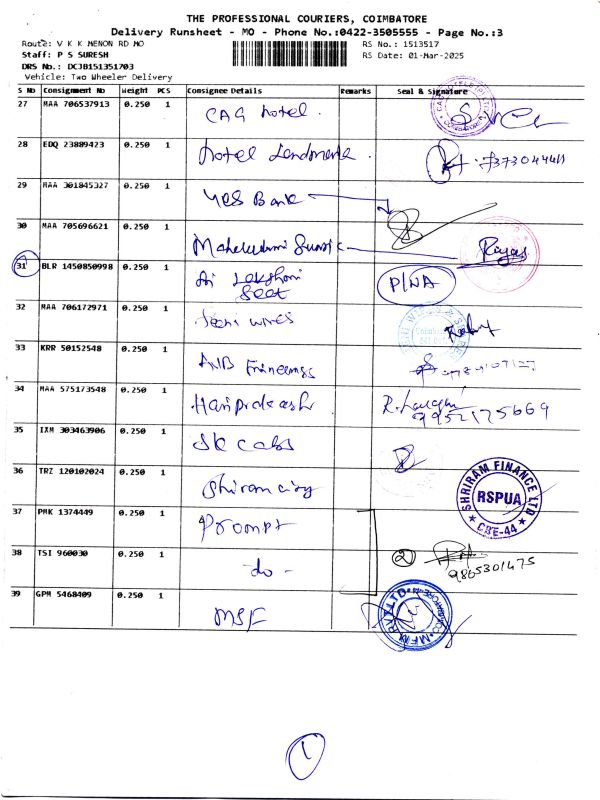 THE PROFESSIONAL COURIERS, COIMBATORE
Delivery Runsheet - MO - Phone No.:0422-3505555 - Page No.:3
Route: V K K MENON RD MO
RS No.: 1513517
Staff: P S SURESH
RS Date: 01-Mar-2025
DRS No.: DCJB151351703
Vehicle: Two Wheeler Delivery
S No Consignment No Weight PCS Consignee Details Remarks Seal & Signature
27 MAA 706537913 0.250 1 CAG hotel
28 EDQ 23889423 0.250 1 hotel Landmark
29 MAA 301845327 0.250 1 YES Bank
30 MAA 705696621 0.250 1 Rajas
31 BLR 1450850998 0.250 1 Sri Lakshmi Seat P/NA
32 MAA 706172971 0.250 1
33 KRR 50152548 0.250 1
34 MAA 575173548 0.250 1 Hariprakash 9952175669
35 IXM 303463906 0.250 1 SK cabs
36 TRZ 120102024 0.250 1 Shriram city SHRIRAM FINANCE LTD RSPUA CBE-44
37 PMK 1374449 0.250 1 Prompt
38 TSI 960030 0.250 1 do - 2 9865301475
39 GPM 5468409 0.250 1 MSF
1